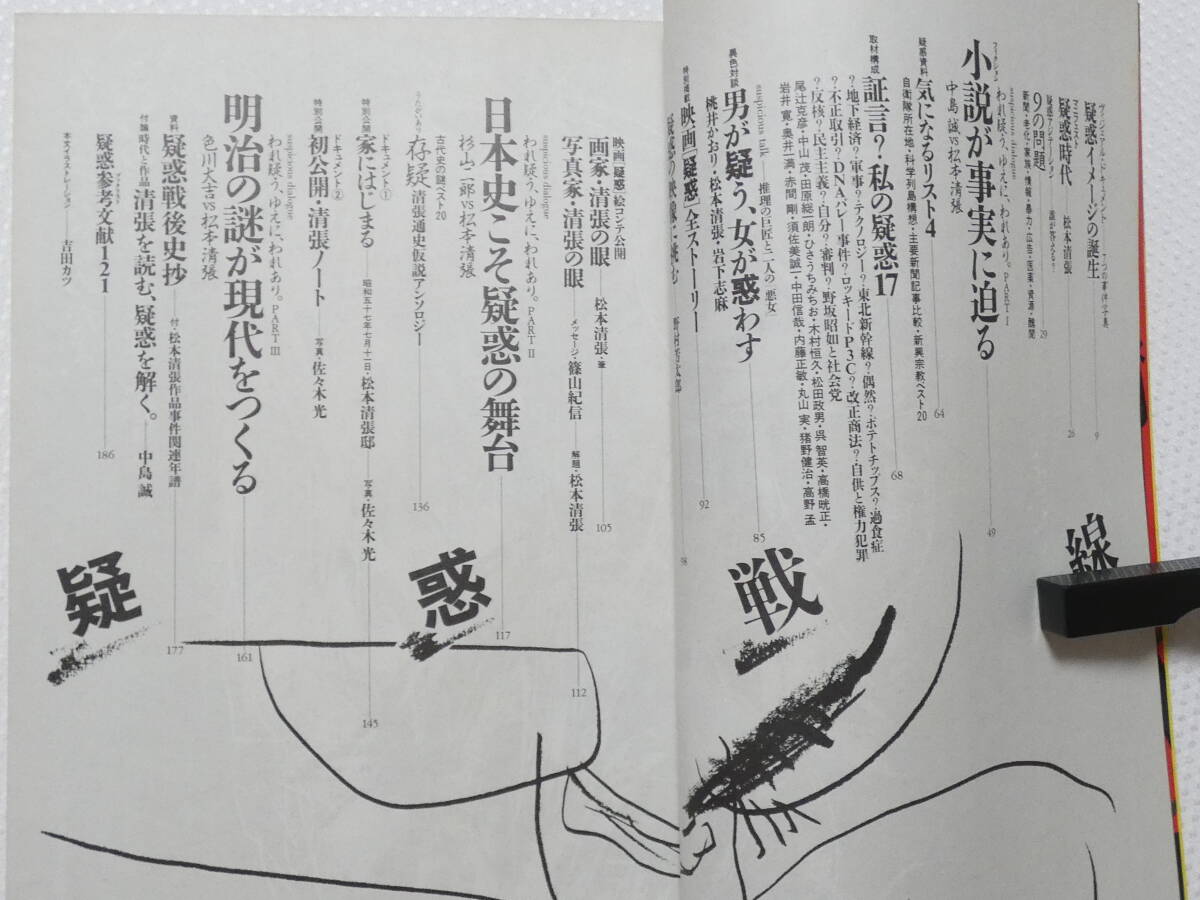 疑惑イメージの誕生
9
疑惑時代
松本清張
26
9の問題
誰が答える?
29
suspicious dialogue
われ疑う、ゆえに、われあり。PART I
小説が事実に迫る
中島誠vs松本清張
49
疑惑資料
気になるリスト4
自衛隊所在地・科学列島構想・主要新聞記事比較・新興宗教ベスト20
64
取材構成
証言?・私の疑惑17
?地下経済?・軍事?・テクノロジー?・東北新幹線?・偶然?・ポテトチップス?・過食症
?不正取引?・DNAバレー事件?・ロッキードP3C?・改正商法?・自供と権力犯罪
?反核?・民主主義?・自分?・審判?・野坂昭如と社会党
尾辻克彦・中山茂・田原総一朗・ひさうちみちお・木村恒久・松田政男・呉智英・高橋晄正・
岩井寛・奥井一満・赤間剛・須佐美誠一・中田信哉・内藤正敏・丸山実・猪野健治・高野孟
68
異色対談
suspicious talk
推理の巨匠と二人の「悪女」
男が疑う、女が惑わす
桃井かおり・松本清張・岩下志麻
85
特別掲載
映画「疑惑」全ストーリー
92
疑惑の映像に挑む
野村芳太郎
98
線
戦
映画「疑惑」絵コンテ公開
画家・清張の眼
松本清張・筆
105
写真家・清張の眼
メッセージ・篠山紀信
解題・松本清張
112
suspicious dialogue
われ疑う、ゆえに、われあり。PART II
日本史こそ疑惑の舞台
杉山二郎vs松本清張
117
古代史の謎ベスト20
うたがいあり
存疑 清張通史仮説アンソロジー
136
ドキュメント①
特別公開
家にはじまる
昭和五十七年七月十一日・松本清張邸
写真・佐々木光
ドキュメント②
特別公開
初公開・清張ノート
写真・佐々木光
145
suspicious dialogue
われ疑う、ゆえに、われあり。PART III
明治の謎が現代をつくる
色川大吉vs松本清張
161
資料
疑惑戦後史抄
付・松本清張作品事件関連年譜
177
付論
時代と作品
清張を読む、疑惑を解く。
中島誠
疑惑参考文献121
186
本文イラストレーション
吉田カツ
惑
疑